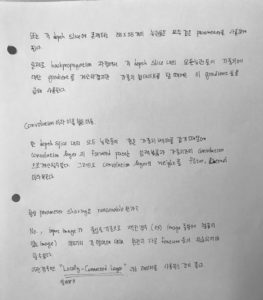 또는 각 depth slice에 존재하는 55 x 55개의 뉴런들은 모두 같은 parameter를 사용하게
된다.
실제로 backpropagation 과정에서 각 depth slice 내의 모든 뉴런들이 가중치에
대한 gradient를 계산하겠지만 가중치 업데이트를 할 때에는 이 gradient들을
합해 사용한다.
Convolution 이라 이름 붙은 이유.
한 depth slice 내의 모두 뉴런들이 같은 가중치
convolution layer의 forward pass는 입력볼륨과 가중치 간의 convolution
으로 계산 그래서 convolution layer의 weight를 filter, kernel
이라 한다.
항상 parameter sharing은 reasonable 한가?
No., input image가 중심을 기준으로 찍힌 경우 (ex) image 중앙에 얼굴이
있는 image) 에서는 각 영역에 대해 완전히 다른 feature들이 학습되기에
이런경우엔 "Locally-Connected Layer" 라는 레이어를 사용하는 것이 좋다.